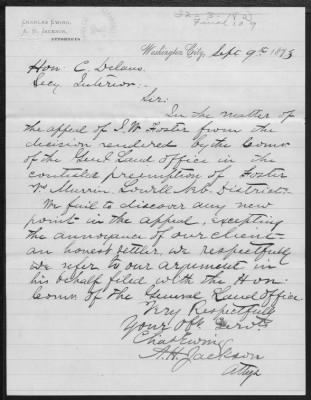 CHARLES EWING,
A. H. JACKSON,
ATTORNEYS
Washington City, Sept 9th 1873
Hon: C. Delano.
Secy Interior..
Sir:
In the matter of
the appeal of I. W. Foster from the
decision rendered by the Comr.
of the Genl Land Office in the
contested preemption of Foster
vs Murrin, Lowell Neb. District:
We fail to discover any new
point in the appeal, excepting
the annoyance of our client
an honest settler, we respectfully
we refer to our argument in
his behalf filed with the Hon.
Comr. of the General Land Office
Very Respectfully
Your Obt Servts
Chas Ewing
A. H. Jackson
Attys